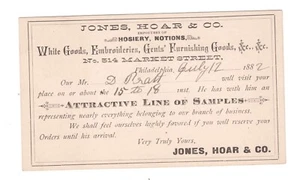 JONES, HOAR & CO.
IMPORTERS OF
HOSIERY, NOTIONS,
White Goods, Embroideries, Gents' Furnishing Goods, &c., &c.
No. 314 MARKET STREET,
Philadelphia, July 12 1882
Our Mr. D will visit your
place on or about the 15 to 18 inst. He has with him an
ATTRACTIVE LINE OF SAMPLES
representing nearly everything belonging to any branch of business.
We shall feel ourselves highly favored if you will reserve your
Orders until his arrival.
Very Truly Yours,
JONES, HOAR & CO.